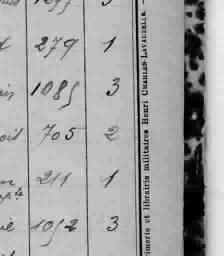 279 1
1085 3
705 2
211 1
1052 3
imerie et librairie militaires Henri CHARLES-LAVAUZELLE